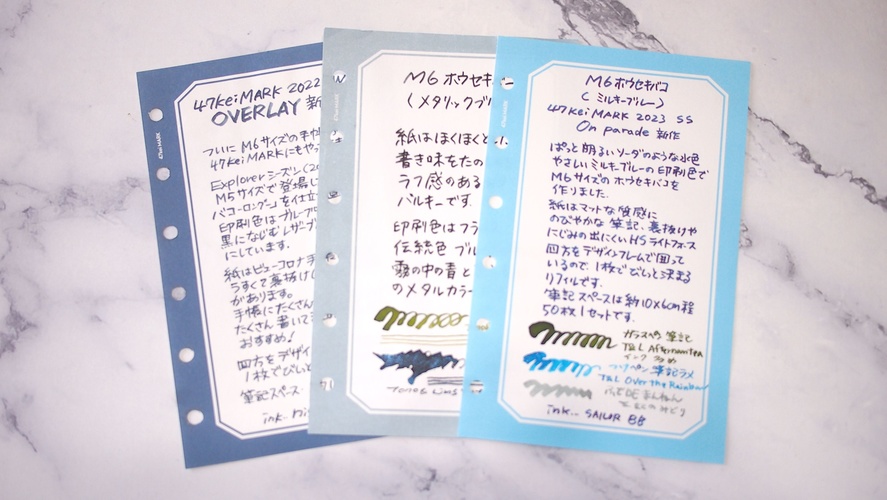 47kei MARK 2022
OVERLAY 新
ついに M6サイズの
47kei MARKにもやっ
Explorerシーズン(20
M5サイズで登場し
バコーロングー」を仕立
印刷色はブループ
黒になじむレザーブ
にしています。
紙はビューコロナ
うすくて裏抜け
があります。
手帳にたくさん
たくさん書いて
おすすめ!
四方をデザイ
1枚でぴしっ
筆記スペース・
ink..
47kei MARK
M6 ホウセキ
(メタリックブリ
紙はほくほくと
書き味をたの
ラフ感のある
バルキーです。
印刷色はフラ
伝統色 ブル
霧の中の青と
のメタルカラー
M6 ホウセキバコ
(ミルキーブルー)
47kei MARK 2023 SS
On parade 新作
ぱっと明るいソーダのような水色
やさしいミルキーブルーの印刷色で
M6サイズのホウセキバコを
作りました。
紙はマットな質感に
のびやかな筆記、裏抜けや
にじみの出にくいHSライトフォース
四方をデザインフレームで囲って
いるので、1枚でぴしっと決まる
リフィルです。
筆記スペースは約10×6cm程
50枚1セットです。
ガラスペン筆記
T&L Afternoon Tea
インク多め
つけペン 筆記ラメ
T&L Over the Rainbow
ink... SAILOR